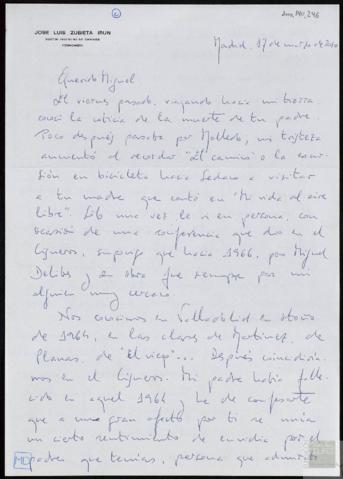 AMD, 140, 246
JOSE LUIS ZUBIETA IRUN
Madrid, 17 de marzo de 2010
Querido Miguel
El viernes pasado, viajando hacia mi tierra,
conocí la noticia de la muerte de tu padre.
Poco después pasaba por Molledo, mi tristeza
aumentó al recordar "El camino" o la excur
sión en bicicleta hacia Sedano a visitar
a tu madre que contó en "Mi vida al aire
libre". Sólo una vez le vi en persona, con
ocasión de una conferencia que dio en el
Lijueros, supongo que hacia 1966, pero Miguel
Delibes y su obra fue siempre para mí
alguien muy cercano.
Nos conocimos en Valladolid en otoño
de 1964, en las clases de Martinez, de
Planas, de "El viejo"... Después coincidiría-
mos en el Lijueros. Mi padre había falle-
cido en aquel 1964 y he de confesarte
que a un gran afecto por ti se unía
un cierto sentimiento de envidia por el
padre que tenías, persona que admiraba
MD